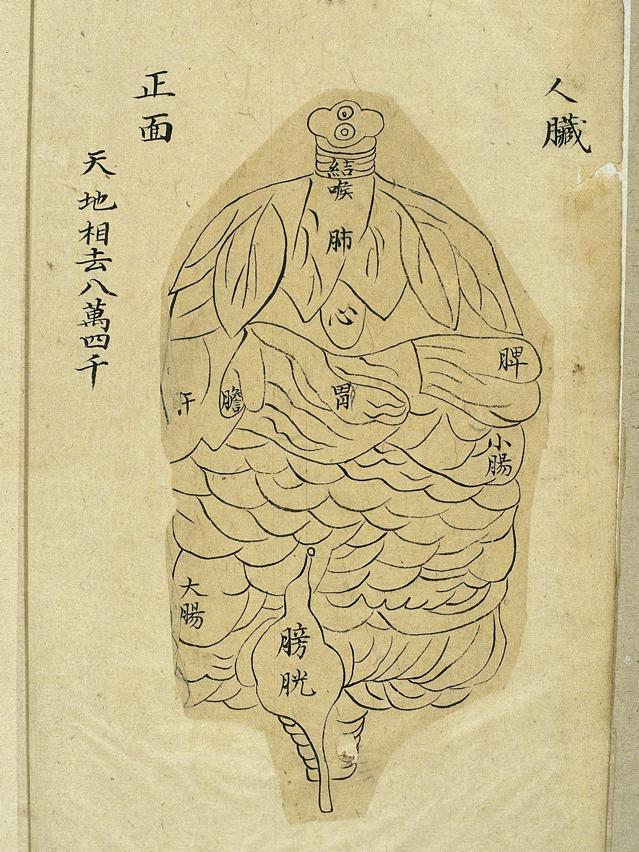 人臓
正面
天地相去八萬四千
結喉
肺
心
脾
胃
膽
肝
小腸
大腸
膀胱